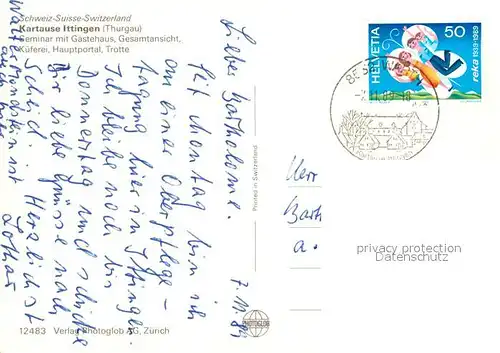 Schweiz-Suisse-Switzerland
Kartause Ittingen (Thurgau)
Seminar mit Gästehaus, Gesamtansicht,
Küferei, Hauptportal, Trotte
7.11.89
Liebe Bartholome.
Seit Montag bin ich
an einer Oberpflege-
tagung hier in Ittingen.
Ich bleibe noch bis
Donnerstag und schicke
Dir liebe Grüsse nach
Scheid. Herzlichst
Lothar
ist
auch
12483 Verlag Photoglob AG, Zürich
Printed in Switzerland
PHOTOGLOB
HELVETIA
50
reka 1939-1989
Herr
Barth
a.
privacy protection
Datenschutz